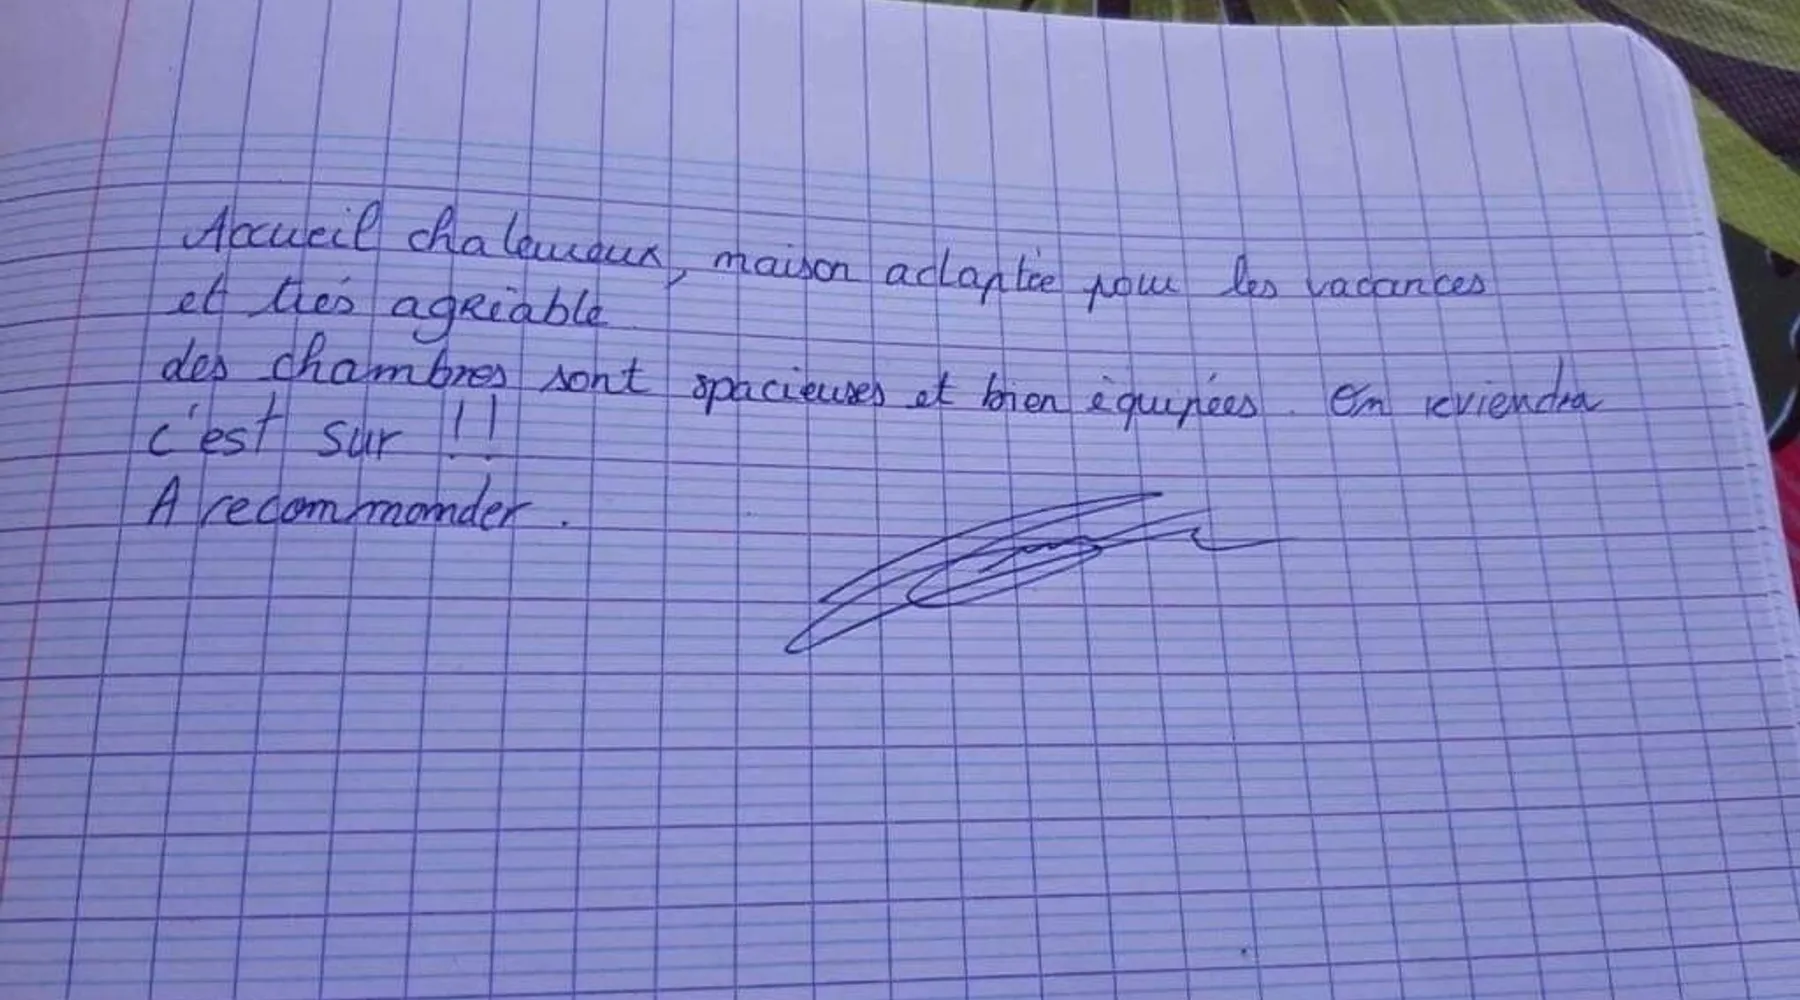 Accueil chaleureux, maison adaptée pour les vacances
et très agréable
des chambres sont spacieuses et bien équipées. On reviendra
c'est sur !!
A recommander.